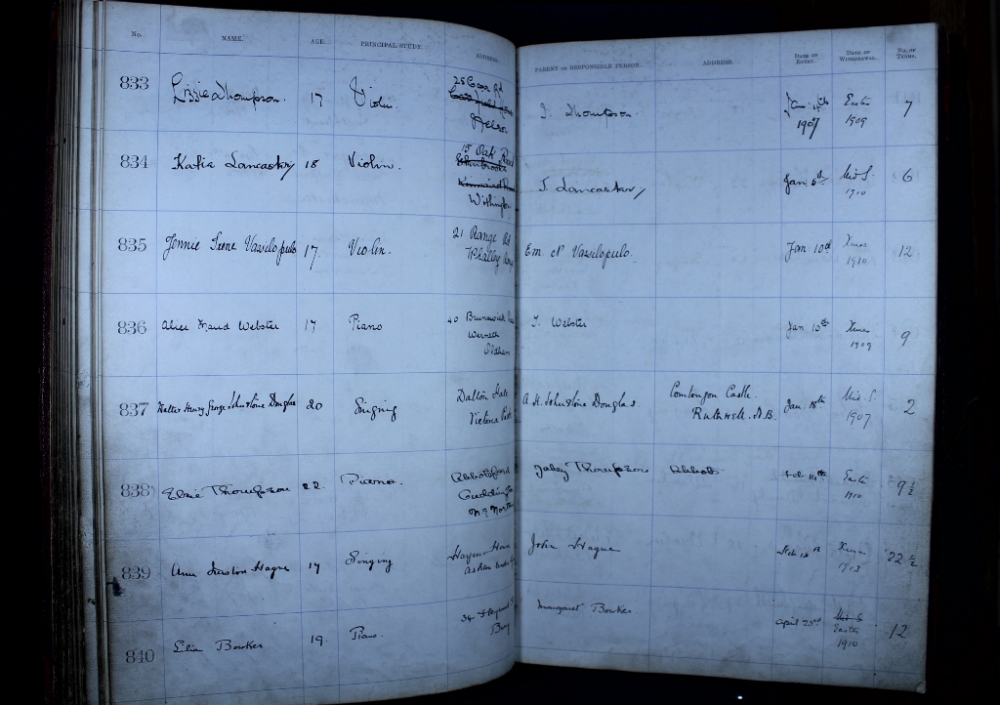 No. NAME. AGE. PRINCIPAL STUDY. ADDRESS. PARENT OR RESPONSIBLE PERSON. ADDRESS. DATE OF ENTRY. DATE OF WITHDRAWAL. NO. OF TERMS.
833 Lizzie Thompson. 17 Violin. 25 Rd
Nelson
J. Thompson. Jan. 1907 Easter 1909 7
834 Katie Lancaster 18 Violin. 15 Oak Road
Withington
J. Lancaster Jan 8th Mid S. 1910 6
835 Jennie Irene Vassilopulo 17. Violin. 21 Range Rd
Whalley Range
Em. Vassilopulo. Jan. 10th Xmas 1910 12
836 Alice Maud Webster 17 Piano 40 Brunswick
Werneth
Oldham
J. Webster Jan 15th Xmas 1909 9
837 Walter Henry George Johnstone Douglas 20 Singing Dalton Hall
Victoria Park
A. H. Johnstone Douglas Comlongon Castle.
Ruthwell. N.B.
Jan. 18th Mid. S. 1907 2
838 Elsie Thompson 22. Piano. Abbotsford
Cuddington
Nr North
Jabez Thompson Abbots Feb Easter 1910 9 ½
839 Annie Hague 17 Singing Hague House
John Hague Feb Xmas 1913 22 ½
840 Elsie Bowker 19. Piano. 34
Bury
Margaret Bowker April 23rd Mid S Easter 1910 12